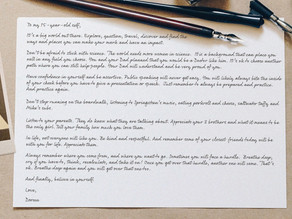 To my 15-year-old self,
It's a big world out there. Explore, question, travel, discover and find the
ways and places you can make your mark and have an impact.
Don't be afraid to stick with science. The world needs more women in science. It is a background that can place you
well in any field you choose. You and your Dad planned that you would be a Doctor like him. It's ok to choose another
path where you can still help people. Your Dad will understand and be very proud of you.
Have confidence in yourself and be assertive. Public speaking will never get easy. You will likely always bite the inside
of your cheek before you have to give a presentation or speech. Just remember to always be prepared and practice.
And practice again.
Don't stop running on the boardwalk, listening to Springsteen's music, eating porkroll and cheese, saltwater taffy and
Mike's subs.
Listen to your parents. They do know what they are talking about. Appreciate your 5 brothers and what it means to be
the only girl. Tell your family how much you love them.
In life, not everyone will like you. Be kind and respectful. And remember some of your closest friends today will be
with you for life. Appreciate them.
Always remember where you came from, and where you want to go. Sometimes you will face a hurdle. Breathe deep,
cry if you have to, think, recalculate, and take it on! Once you get over that hurdle, another one will come. That's
ok. Breathe deep again and you will get over that one too.
And finally, believe in yourself.
Love,